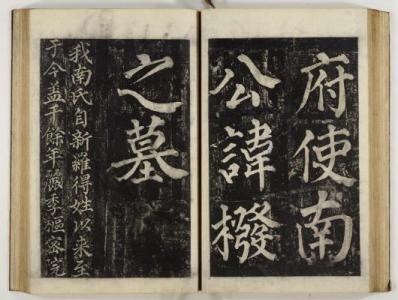 府使南
公諱撥
之墓
我南氏自新羅得姓以來至
于今蓋千餘年麗季樞密院